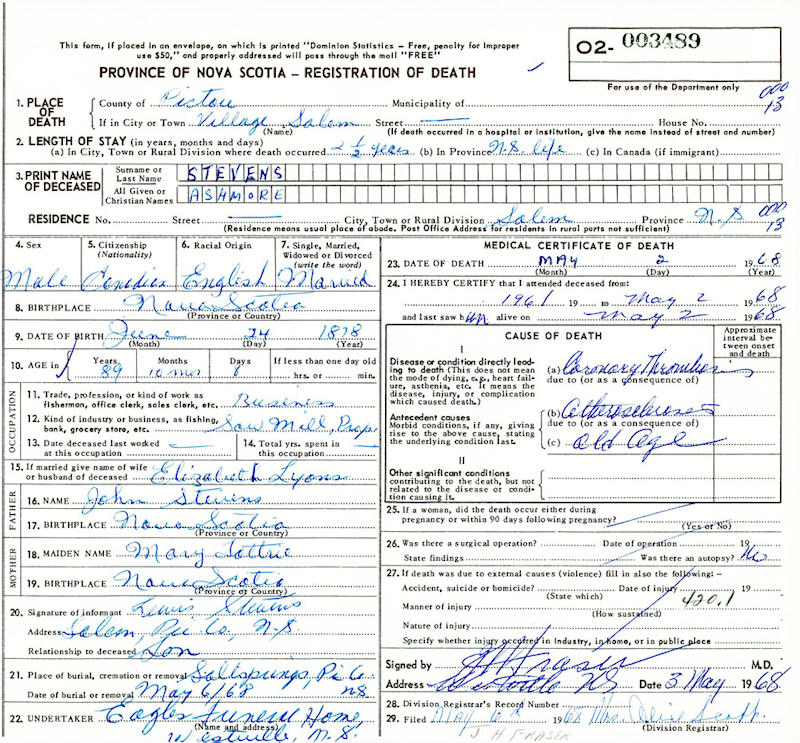 This form, if placed in an envelope, on which is printed "Dominion Statistics – Free, penalty for improper
use $50," and properly addressed will pass through the mail "FREE"
O2- 003489
PROVINCE OF NOVA SCOTIA – REGISTRATION OF DEATH
For use of the Department only
1. PLACE OF DEATH
County of Pictou Municipality of 000 13
If in City or Town Village Salem Street — House No.
(Name) (If death occurred in a hospital or institution, give the name instead of street and number)
2. LENGTH OF STAY (in years, months and days)
(a) In City, Town or Rural Division where death occurred 2 1/2 years (b) In Province N.S. life (c) In Canada (if immigrant)
3. PRINT NAME OF DECEASED
Surname or Last Name STEVENS
All Given or Christian Names ASHMORE
RESIDENCE No. Street — City, Town or Rural Division Salem Province N S 000 13
(Residence means usual place of abode. Post Office Address for residents in rural parts not sufficient)
4. Sex 5. Citizenship (Nationality) 6. Racial Origin 7. Single, Married, Widowed or Divorced (write the word)
Male Canadian English Married
8. BIRTHPLACE Nova Scotia
(Province or Country)
9. DATE OF BIRTH June 24 1878
(Month) (Day) (Year)
10. AGE in Years Months Days If less than one day old
89 10 mos 8 hrs. or min.
OCCUPATION
11. Trade, profession, or kind of work as fisherman, office clerk, sales clerk, etc. Business
12. Kind of industry or business, as fishing, bank, grocery store, etc. Saw Mill, Prop
13. Date deceased last worked at this occupation 14. Total yrs. spent in this occupation
15. If married give name of wife or husband of deceased Elizabeth Lyons
FATHER
16. NAME John Stevens
17. BIRTHPLACE Nova Scotia
(Province or Country)
MOTHER
18. MAIDEN NAME Mary Tottrie
19. BIRTHPLACE Nova Scotia
(Province or Country)
20. Signature of informant Lewis Stevens
Address Salem, Pic Co., N-S.
Relationship to deceased Son
21. Place of burial, cremation or removal Saltsprings, Pi Co. NS
Date of burial or removal May 6/68
22. UNDERTAKER Eagles Funeral Home,
(Name and address)
Westville, N.S.
MEDICAL CERTIFICATE OF DEATH
23. DATE OF DEATH MAY 2 1968
(Month) (Day) (Year)
24. I HEREBY CERTIFY that I attended deceased from:
1961 19 to May 2 1968
and last saw him alive on May 2 1968
CAUSE OF DEATH
Approximate interval between onset and death
I
Disease or condition directly leading to death (This does not mean the mode of dying, e.g., heart failure, asthenia, etc. It means the disease, injury, or complication which caused death.)
(a) Coronary Thrombosis
due to (or as a consequence of)
Antecedent causes
Morbid conditions, if any, giving rise to the above cause, stating the underlying condition last.
(b) Atherosclerosis
due to (or as a consequence of)
(c) Old Age
II
Other significant conditions
contributing to the death, but not related to the disease or condition causing it.
25. If a woman, did the death occur either during pregnancy or within 90 days following pregnancy?
(Yes or No)
26. Was there a surgical operation? Date of operation 19
State findings Was there an autopsy? No
27. If death was due to external causes (violence) fill in also the following: –
Accident, suicide or homicide? Date of injury 19
(State which) 420.1
Manner of injury
(How sustained)
Nature of injury
Specify whether injury occurred in industry, in home, or in public place
Signed by J H Fraser M.D.
Address Westville NS Date 3 May 1968
28. Division Registrar's Record Number
29. Filed May 6th 1968 Mrs. Alice Scott
(Division Registrar)
J H FRASER